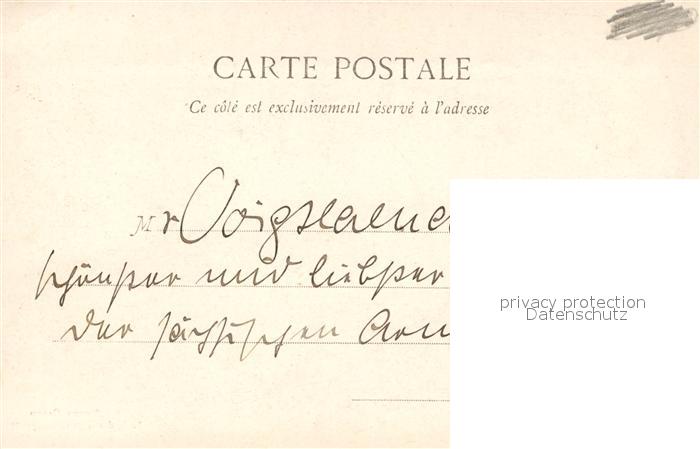 CARTE POSTALE
Ce côté est exclusivement réservé à l'adresse
Mr Voigtlaend
schönster und liebster
privacy protection
Datenschutz
der sächsischen Arm